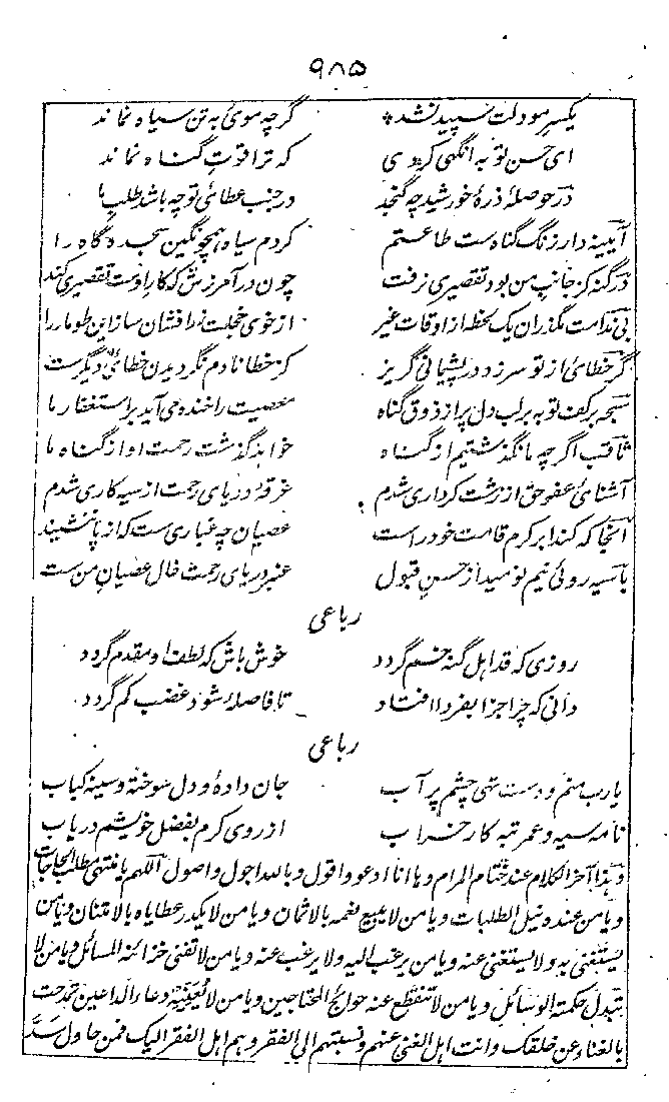 ۹۸۵
یکسر مو دلت سپید نشد * گرچه موئی به تن سیاه نماند
ای حسن توبه انگهی کردی که ترا قوت گناه نماند
در حوصلهٔ ذرهٔ خورشید چه گنجد در جنب عطائی تو چه باشد طلب ما
آیینه دار زنگ گناه ست طاعتم کردم سیاه همچو نگین سجده گاه را
در گنه کز جانب من بود تقصیری نرفت چون در آمرزش که کار اوست تقصیری کند
بی ندامت مگذران یک لحظه از اوقات غیر از خوی خجلت زرافشان ساز این طومار را
گر خطائی از تو سرزد در پشیمانی گریز کز خطا نادم نگردیدن خطائی دیگرست
سبحه بر کف توبه بر لب دل پر از ذوق گناه معصیت را خنده می آید بر استغفار ما
ثاقب اگرچه ما نگذشتیم از گناه خواهد گذشت رحمت او از گناه ما
آشنائی عفو حق از زشت کرداری شدم غرقهٔ دریای رحمت از سیه کاری شدم
آنجا که کند ابر کرم قامت خود راست عصیان چه غباری ست که از پا ننشیند
با سیه روئی نیم نومید از حسن قبول عنبر دریای رحمت خال عصیان من ست
رباعی
روزی که قد اهل گنه خم گردد خوش باش که لطف او مقدم گردد
دانی که چرا جزا بفردا افتاد تا فاصلهٔ شود غضب کم گردد
رباعی
یارب منم و دست تهی چشم پر آب جان داده و دل سوخته و سینه کباب
نامه سیه و عمر تبه کار خراب از روی کرم بفضل خویشم دریاب
وهذا آخر الکلام عند ختام المرام وها انا ادعو واقول وبالله اجول واصول اللهم یا منتهی مطلب الحاجات
ویا من عنده نیل الطلبات ویا من لا یبیع نعمه بالاثمان ویا من لا یکدر عطایاه بالامتنان ویا من
یستغنی به ولا یستغنی عنه ویا من یرغب الیه ولا یرغب عنه ویا من لا تفنی خزائنه المسائل ویا من لا
تبدل حکمته الوسائل ویا من لا تنقطع عنه حوائج المحتاجین ویا من لا یعنیه دعاء الداعین تمدحت
بالغناء عن خلقک وانت اهل الغنی عنهم ونسبتهم الی الفقر وهم اهل الفقر الیک فمن حاول سد